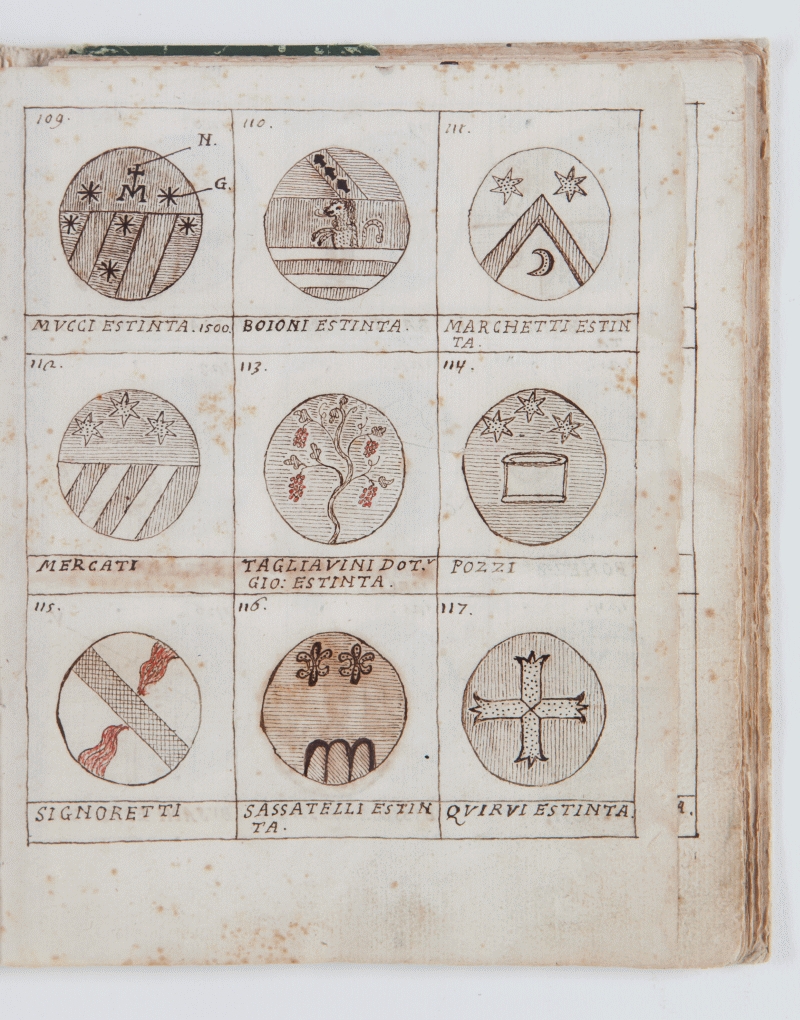 109.
N.
G.
M
MVCCI ESTINTA. 1500.
110.
BOIONI ESTINTA.
111.
MARCHETTI ESTIN
TA.
112.
MERCATI
113.
TAGLIAVINI DOT.r
GIO: ESTINTA.
114.
POZZI
115.
SIGNORETTI
116.
SASSATELLI ESTIN
TA.
117.
QVIRVI ESTINTA.
A.